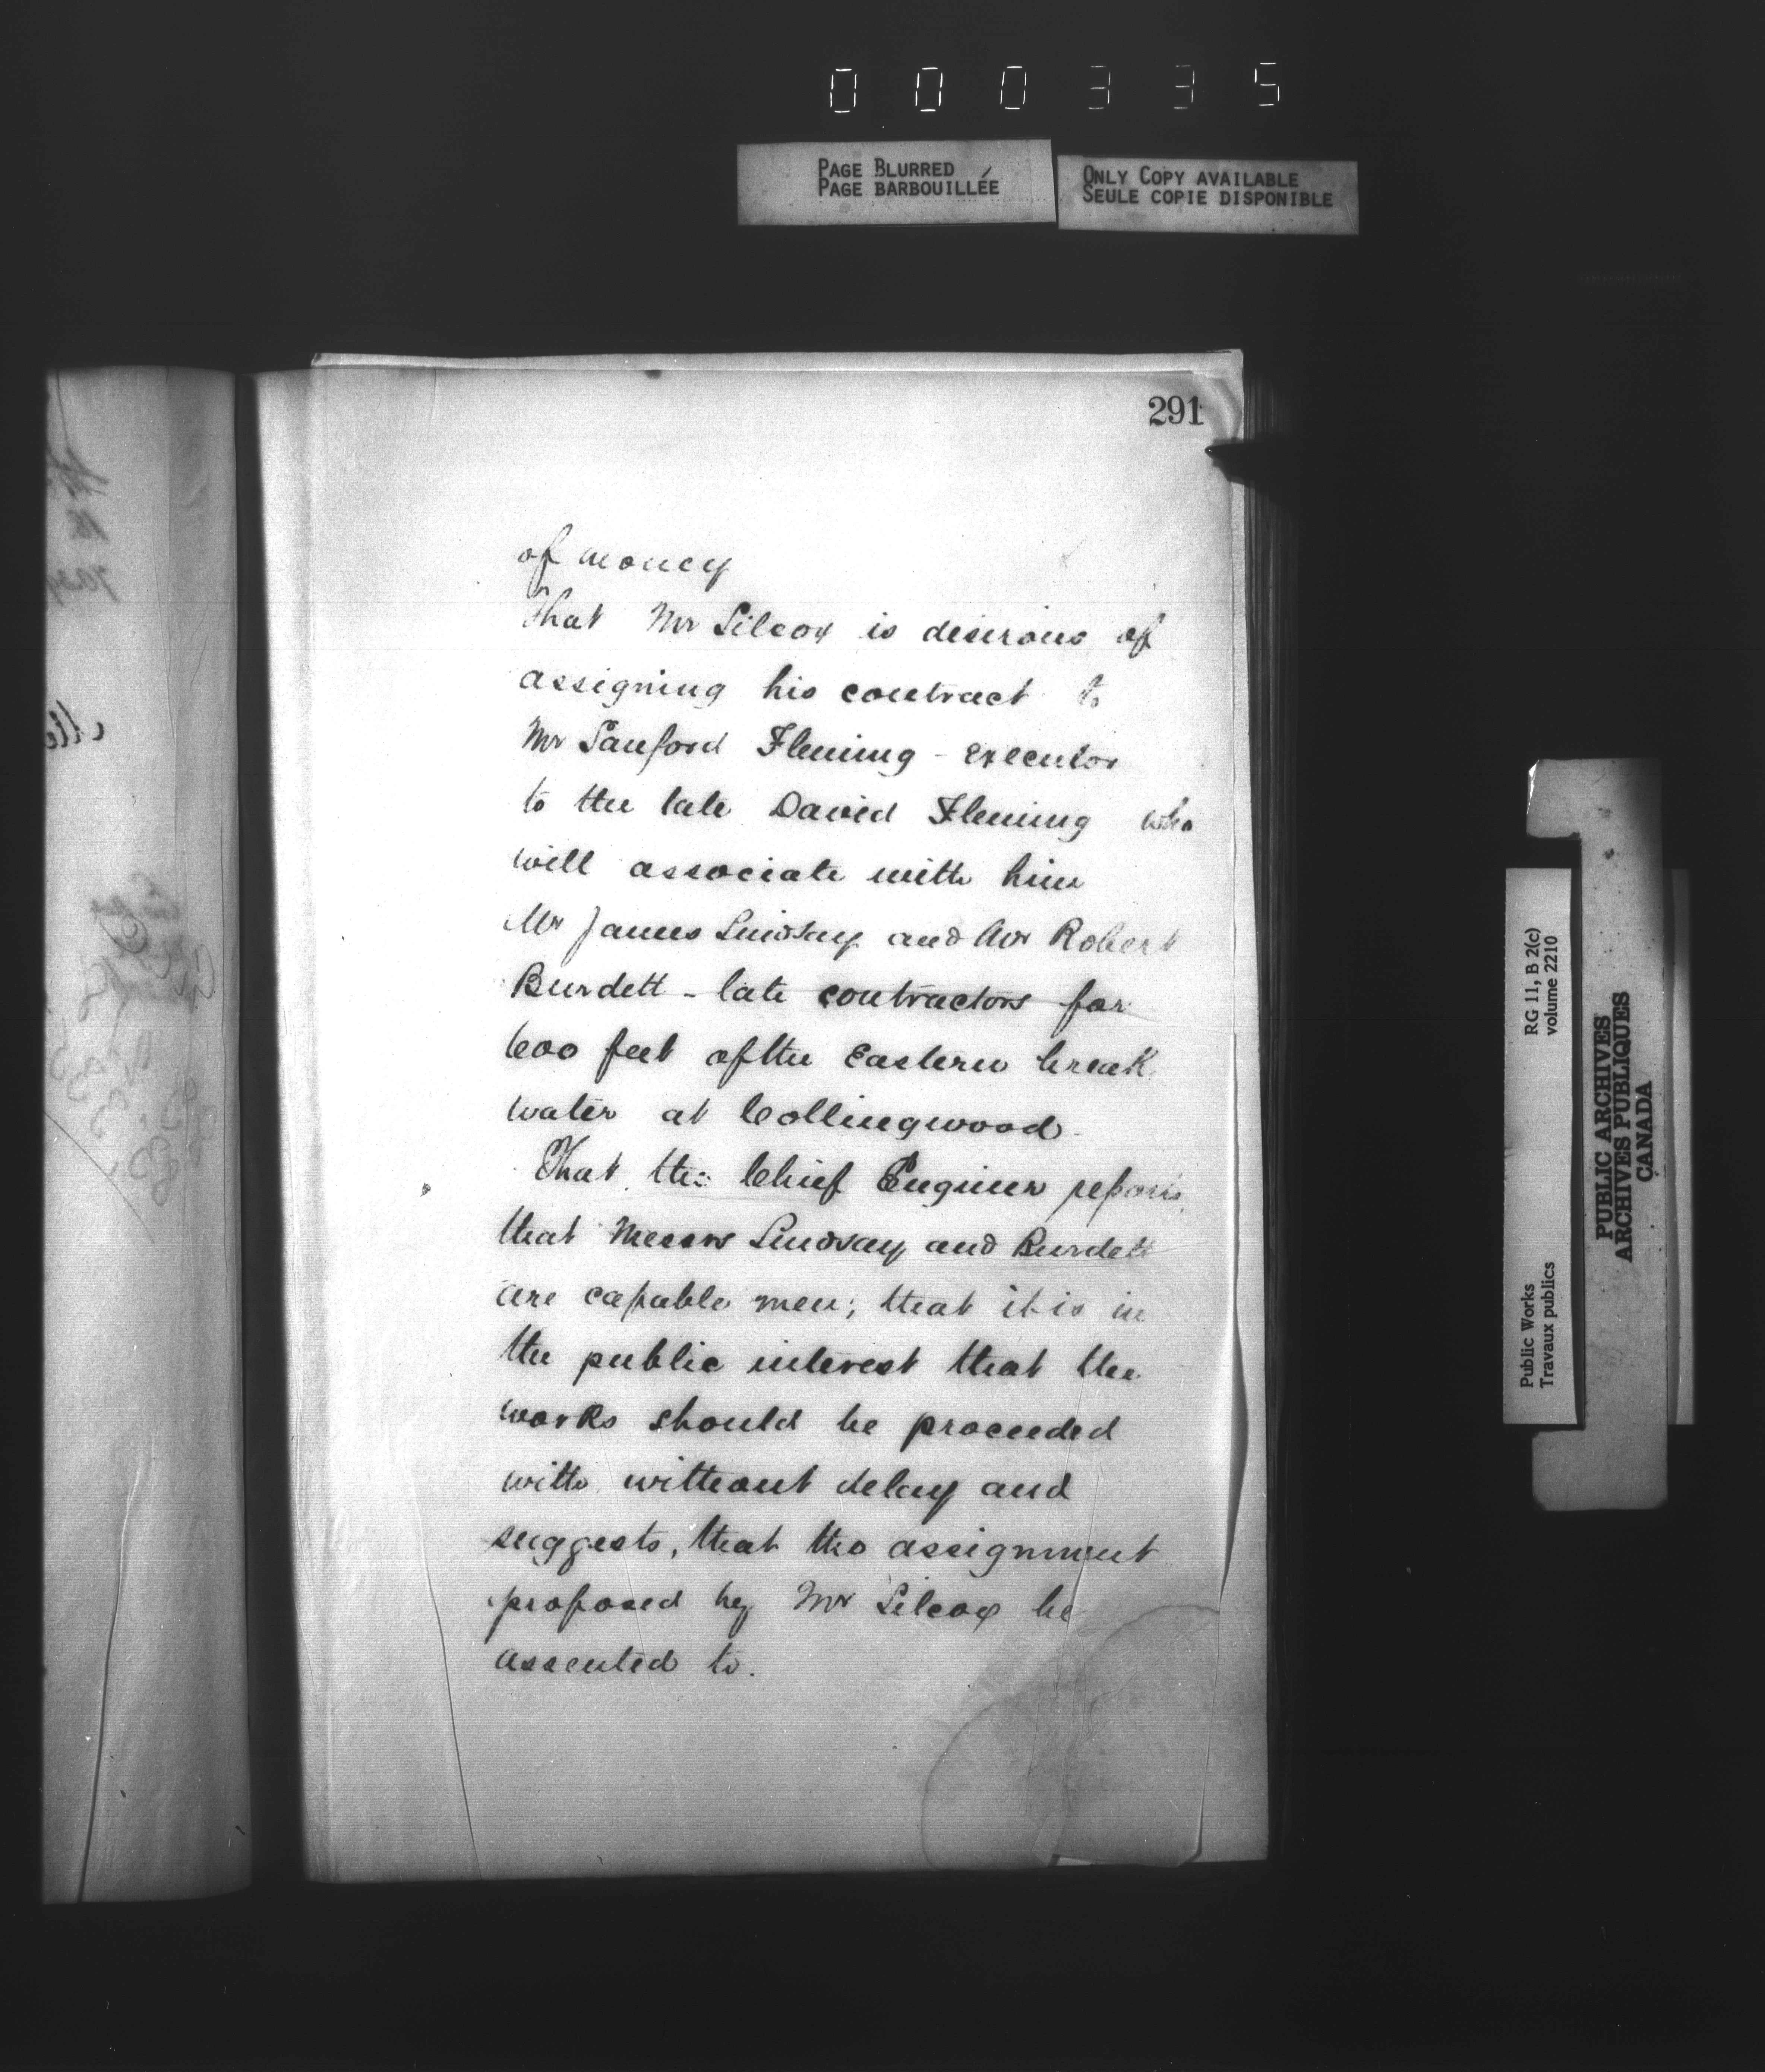 000335
PAGE BLURRED
PAGE BARBOUILLÉE
ONLY COPY AVAILABLE
SEULE COPIE DISPONIBLE
291
of money
That Mr Silcox is desirous of
assigning his contract to
Mr Sanford Fleming - executor
to the late David Fleming who
will associate with him
Mr James Lindsay and Mr Robert
Burdett - late contractors for
600 feet of the Eastern break
water at Collingwood.
That the Chief Engineer reports
that Messrs Lindsay and Burdett
are capable men; that it is in
the public interest that the
works should be proceeded
with without delay and
suggests, that the assignment
proposed by Mr Silcox be
assented to.
RG 11, B 2(c)
volume 2210
Public Works
Travaux publics
PUBLIC ARCHIVES
ARCHIVES PUBLIQUES
CANADA